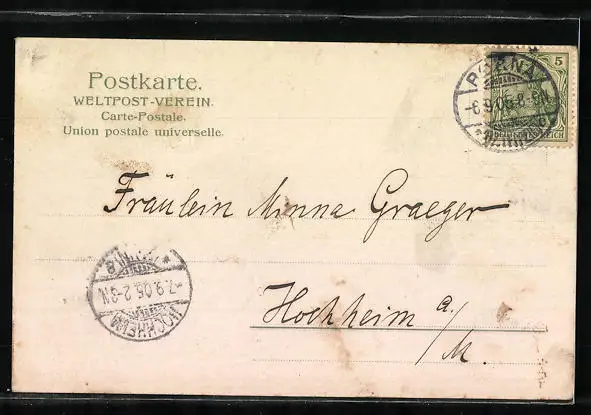 Postkarte.
WELTPOST-VEREIN.
Carte-Postale.
Union postale universelle.
5
DEUTSCHES REICH
-6.9.05.8-9N.
Fräulein Minna Graeger
Hochheim a/M.
-7.9.05.2-3N.
HOCHHEIM